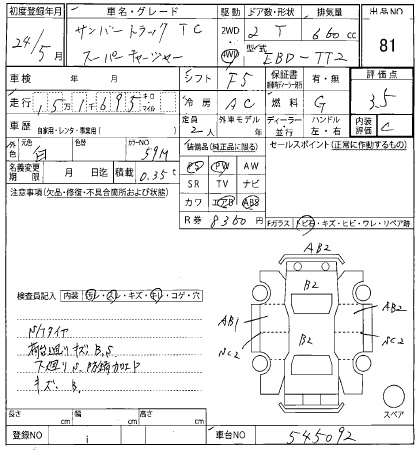 初度登録年月 車名・グレード 駆動 ドア数・形状 排気量 出品NO
24/5月 サンバートラック TC 2WD 4WD 2 T 660cc 81
スーパーチャージャー 型式 EBD-TT2
車検 年 月 シフト F5 保証書 有・無 評価点
走行 15万1千695 キロ マイル 冷房 AC 燃料 G 3.5
車歴 自家用・レンタ・事業用( ) 定員 2人 外車モデル 年 ディーラー・並行 ハンドル 左・右 内装評価 C
外色 白 色替 カラーNO 59M 装備品(純正品に限る) セールスポイント(正常に作動するもの)
名義変更期限 月 日迄 積載 0.35t PS PW AW
注意事項(欠品・修復・不具合箇所および状態) SR TV ナビ
カワ エアB ABS
R券 8360円 Fガラス トビ石・キズ・ヒビ・ワレ・リペア跡
検査員記入 内装 汚レ・スレ・キズ・キレ・コゲ・穴
AB2
B2
AB1 AB2
B2
NC2 NC2
N/Tタイヤ
荷台廻りキズ、B、S
下廻りS、防錆加工
キズ、B、
スペア
長さ cm 幅 cm 高さ cm
登録NO 車台NO 545092